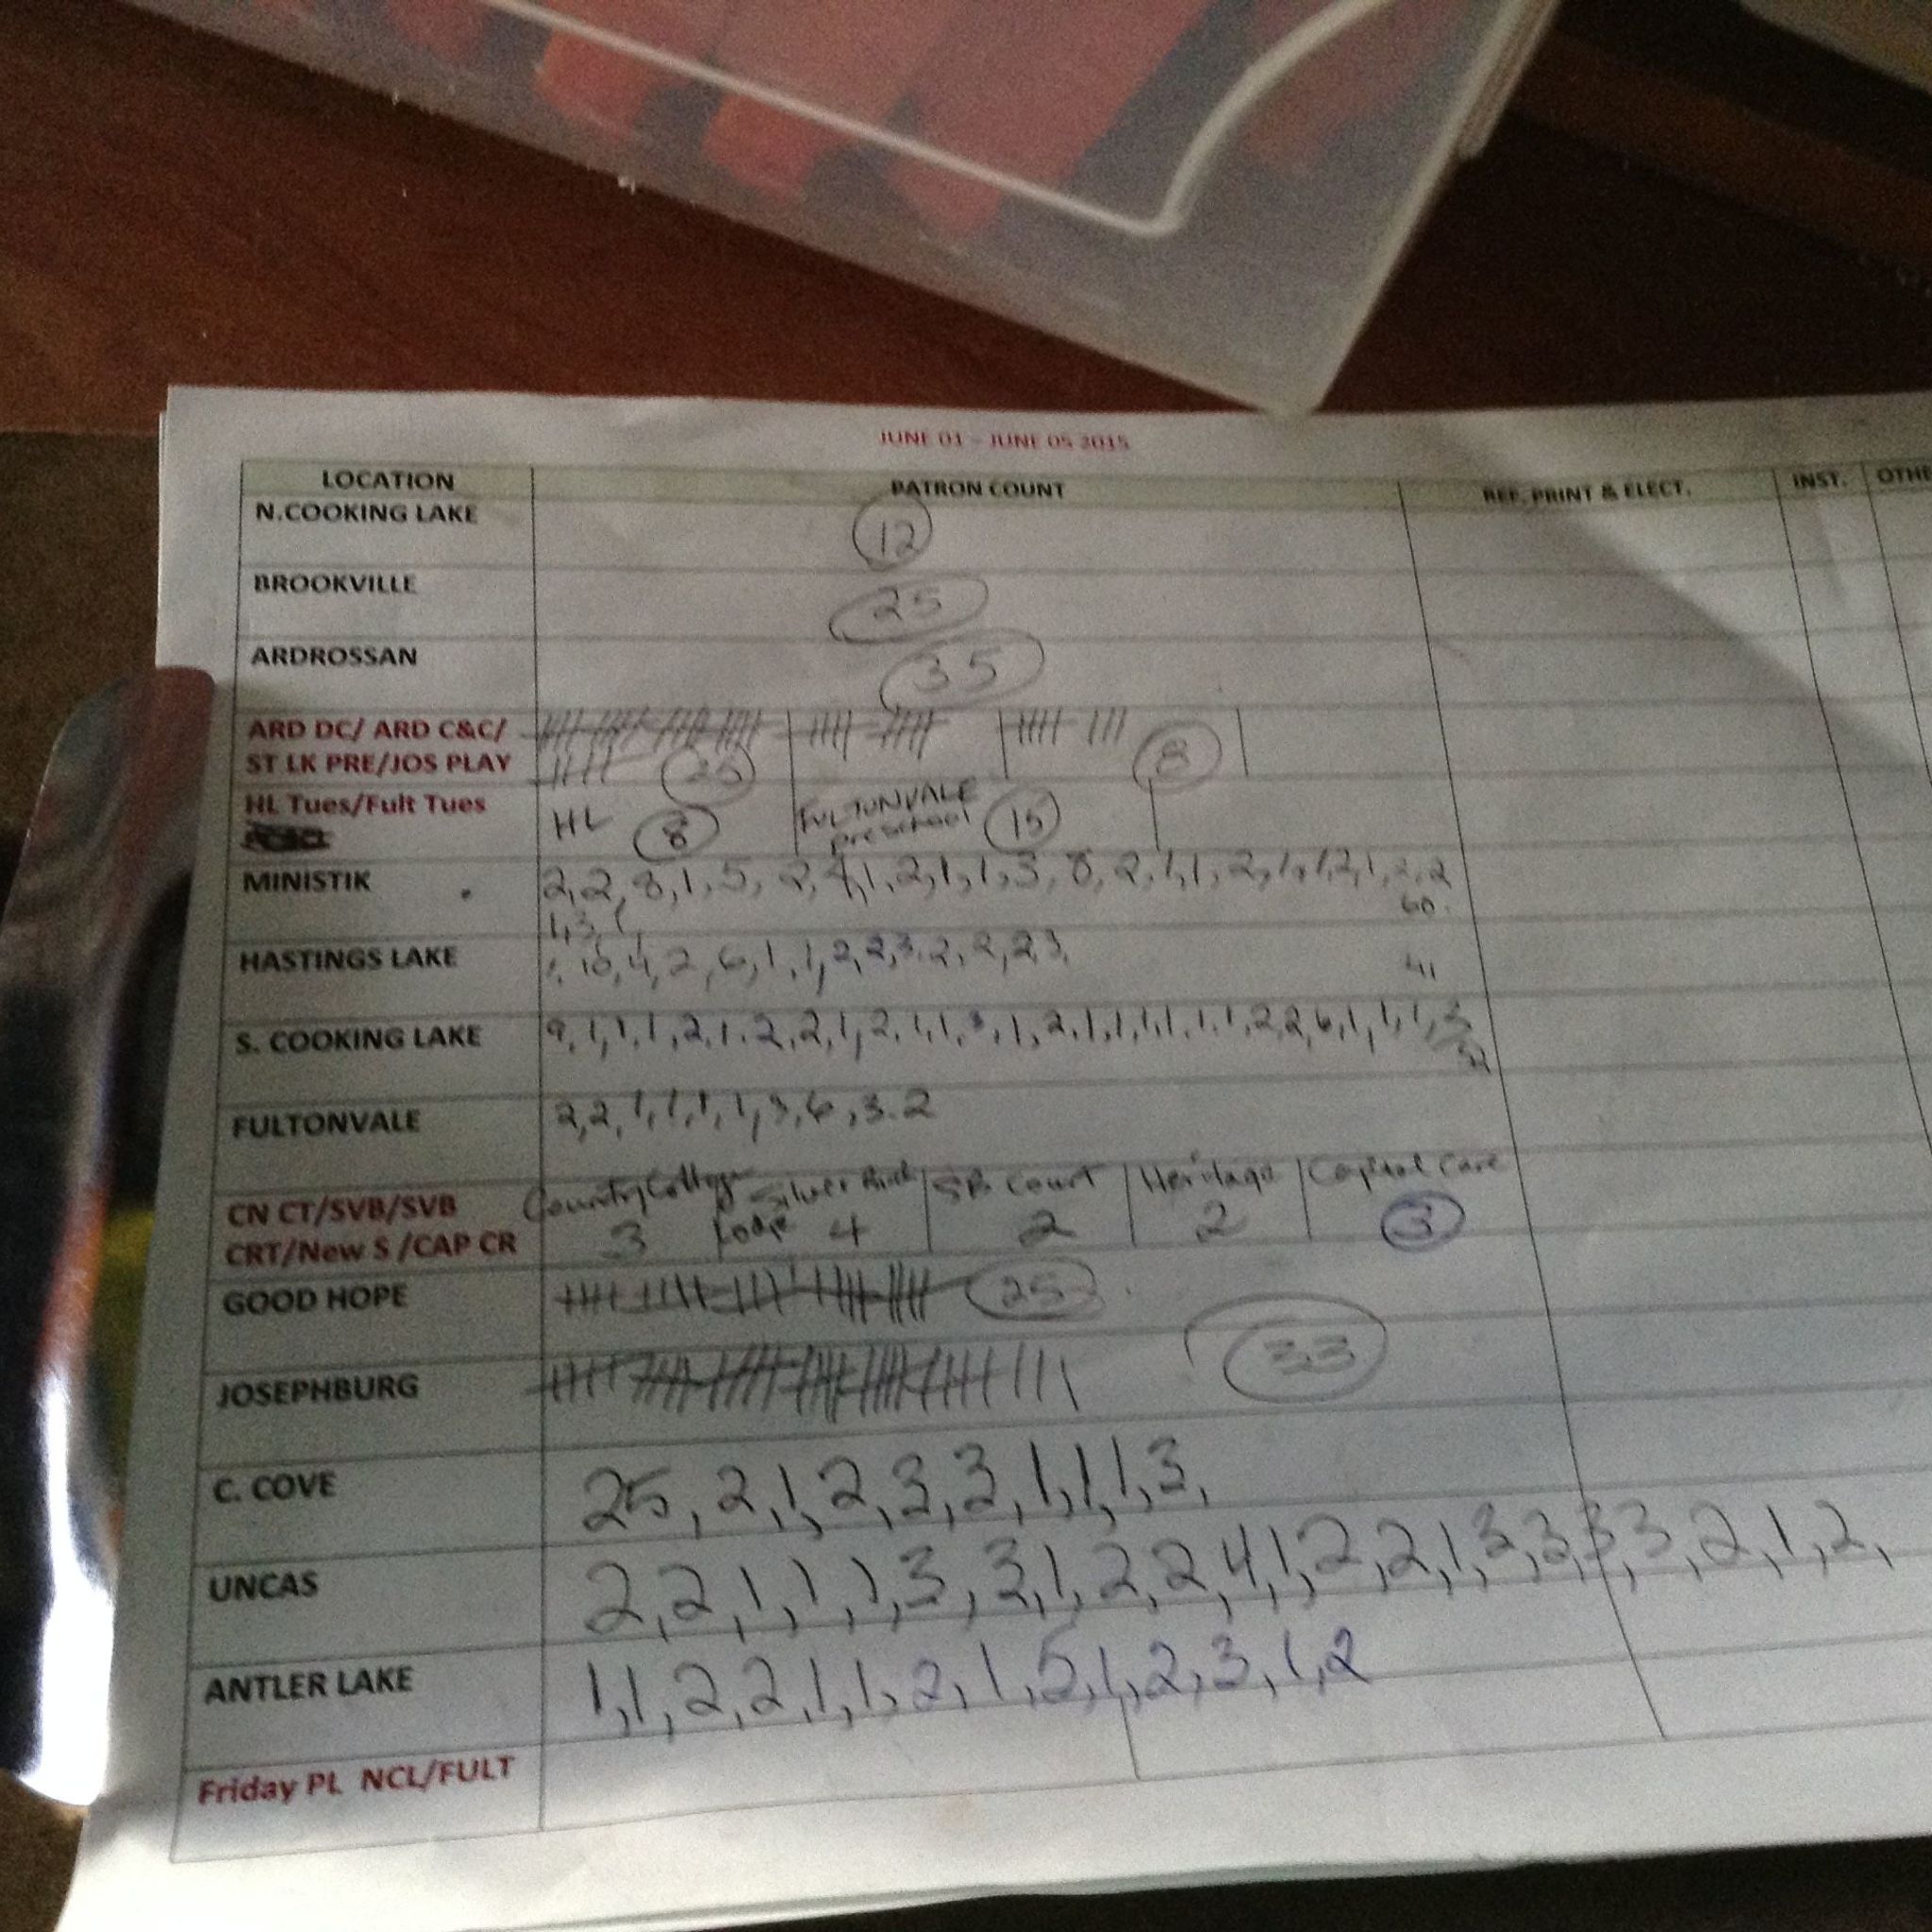 JUNE 01 - JUNE 05 2015
LOCATION PATRON COUNT REF, PRINT & ELECT. INST. OTHE
N.COOKING LAKE 12
BROOKVILLE 25
ARDROSSAN 35
ARD DC/ ARD C&C/
ST LK PRE/JOS PLAY 25 8
HL Tues/Fult Tues HL 8 FULTONVALE preschool 15
MINISTIK 2,2,8,1,5,2,4,1,2,1,1,3,8,2,1,1,2,1,1,1,2,1,2,2
1,3,1, 60
HASTINGS LAKE 1,10,4,2,6,1,1,2,2,3,2,2,2,3, 41
S. COOKING LAKE 9,1,1,1,2,1,2,2,1,2,1,1,3,1,2,1,1,1,1,1,1,2,2,6,1,1,1,3
52
FULTONVALE 2,2,1,1,1,1,3,6,3.2
CN CT/SVB/SVB Country Cottage Silver Birch SB Court Heritage Capital Care
CRT/New S /CAP CR 3 Lodge 4 2 2 3
GOOD HOPE 25
JOSEPHBURG 33
C. COVE 25,2,1,2,3,3,1,1,1,3,
UNCAS 2,2,1,1,1,3,3,1,2,2,4,1,2,2,1,3,3,3,3,2,1,2,
ANTLER LAKE 1,1,2,2,1,1,2,1,5,1,2,3,1,2
Friday PL NCL/FULT